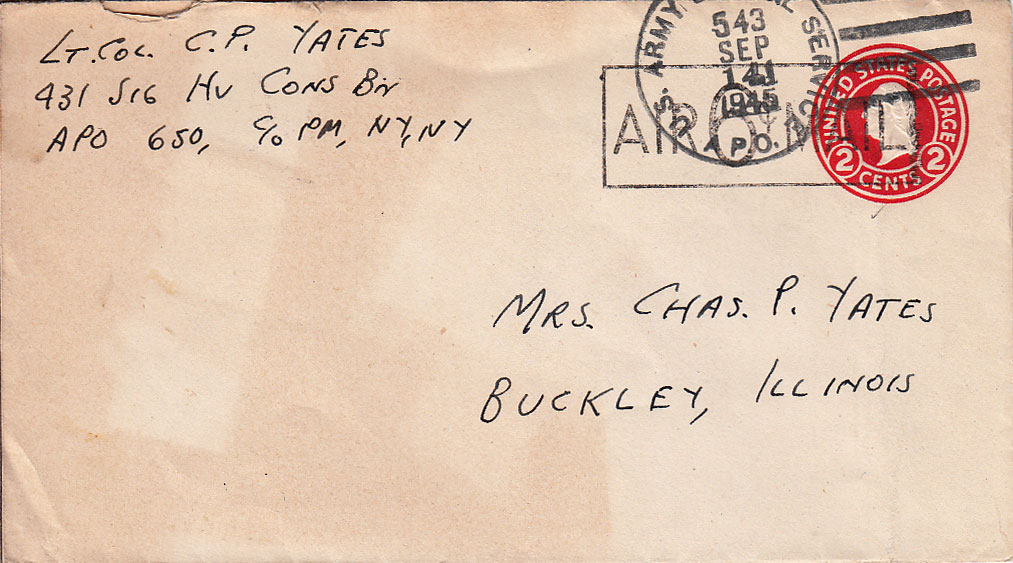 LT. COL. C. P. YATES
431 SIG HV CONS BN
APO 650, c/o PM, NY, NY
U.S. ARMY POSTAL SERVICE
543
SEP
14
1945
A.P.O.
6¢
AIR MAIL
UNITED STATES POSTAGE
2 CENTS 2
MRS. CHAS. P. YATES
BUCKLEY, ILLINOIS